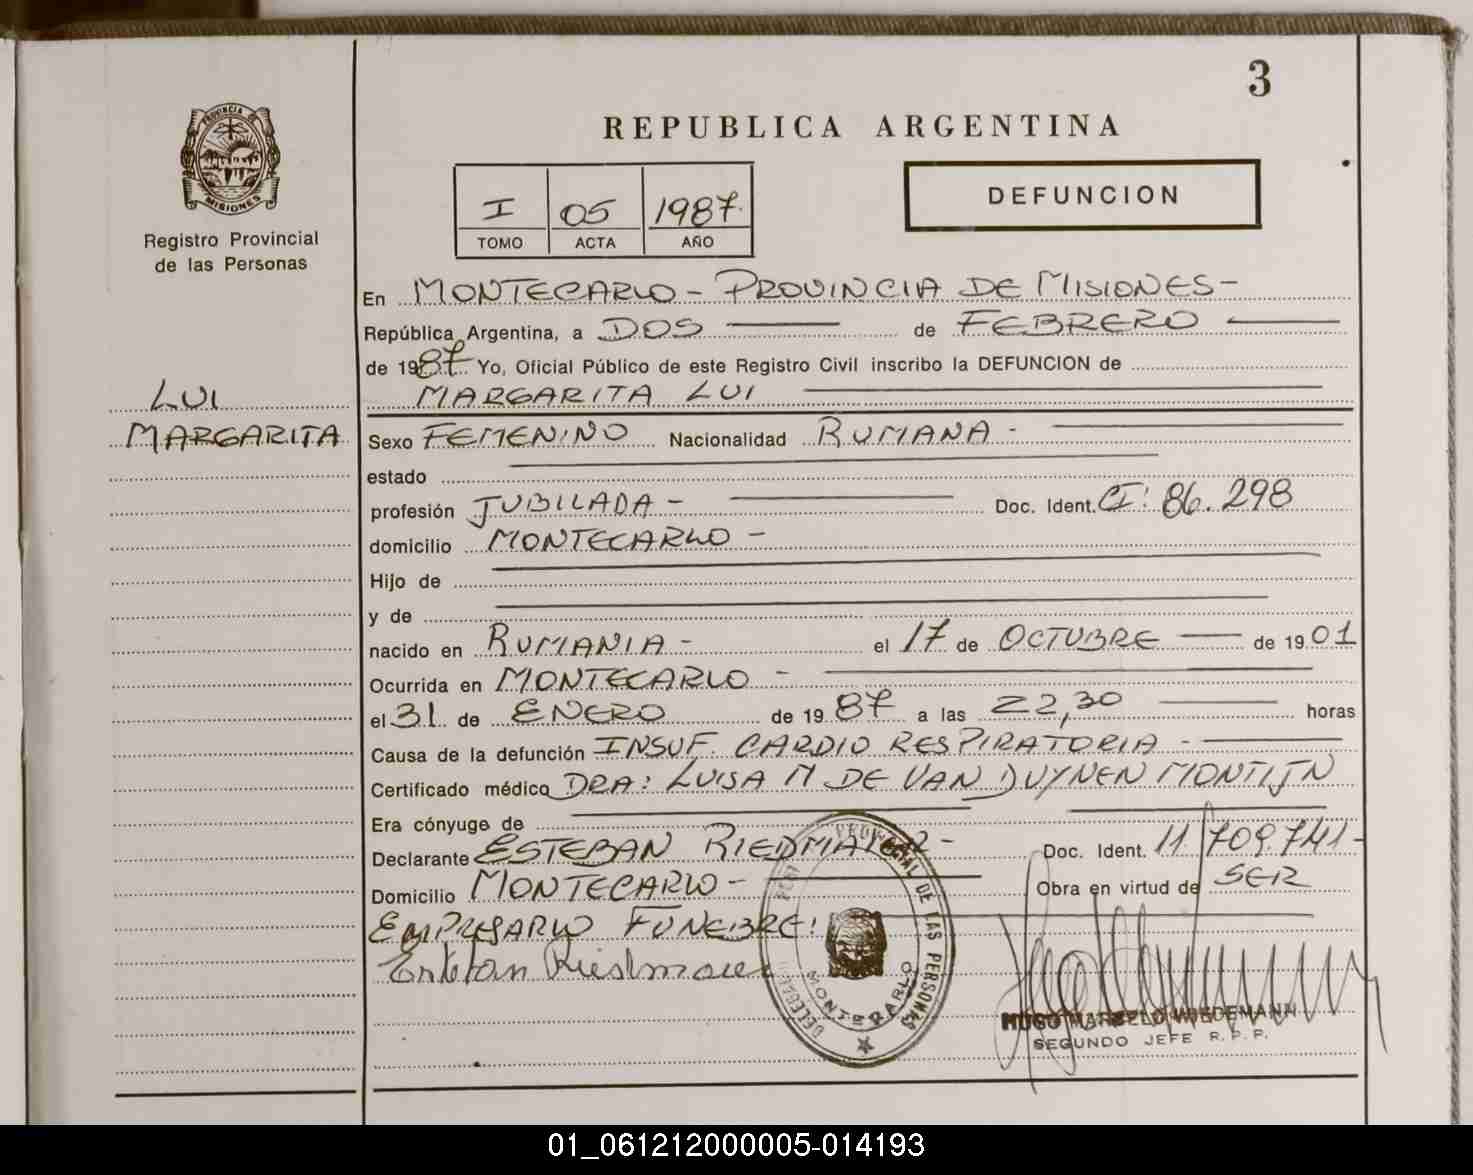 3
PROVINCIA DE
MISIONES
Registro Provincial
de las Personas
REPUBLICA ARGENTINA
I 05 1987.
TOMO ACTA AÑO
DEFUNCION
En MONTECARLO - PROVINCIA DE MISIONES -
República Argentina, a DOS de FEBRERO
de 1987. Yo, Oficial Público de este Registro Civil inscribo la DEFUNCION de
LUI
MARGARITA
MARGARITA LUI
Sexo FEMENINO Nacionalidad RUMANA -
estado
profesión JUBILADA - Doc. Ident. CI: 86.298
domicilio MONTECARLO -
Hijo de
y de
nacido en RUMANIA - el 17 de OCTUBRE de 1901
Ocurrida en MONTECARLO -
el 31 de ENERO de 1987 a las 22,30 horas
Causa de la defunción INSUF. CARDIO RESPIRATORIA -
Certificado médico DRA: LUISA M DE VAN DUYNEN MONTIJN
Era cónyuge de
Declarante ESTEBAN RIEDMAIER - Doc. Ident. 11.709.741-
Domicilio MONTECARLO - Obra en virtud de SER
EMPRESARIO FUNEBRE:
Esteban Riedmaier
DE LAS PERSONAS
MONTECARLO
HUGO MARCELO WIEDEMANN
SEGUNDO JEFE R. P. P.
01_061212000005-014193